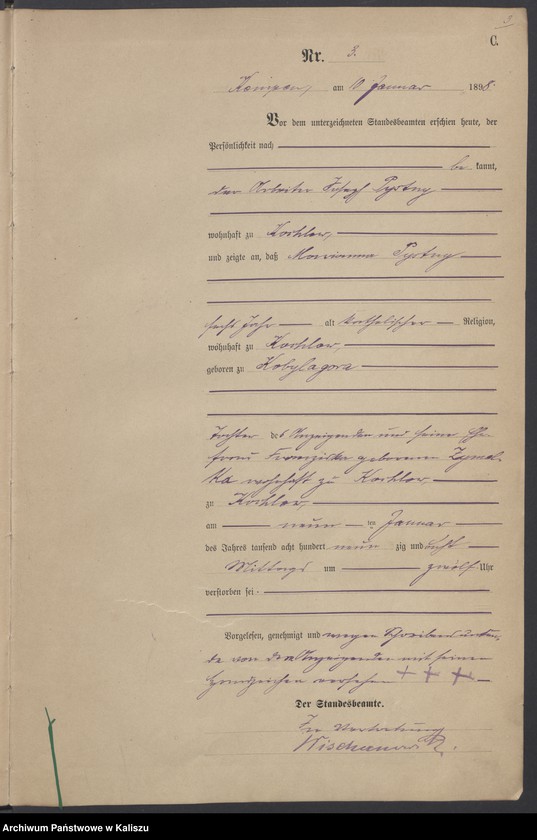 3
C.
Nr. 3.
am 10 Januar 1898.
Vor dem unterzeichneten Standesbeamten erschien heute, der
Persönlichkeit nach
be kannt,
der Arbeiter Josef Pyrtny
wohnhaft zu Kochlow,
und zeigte an, daß Marianna Pyrtny
sechs Jahr alt katholischer Religion,
wohnhaft zu Kochlow,
geboren zu Kobylagora
Tochter des Anzeigenden und seiner Ehe-
frau Franziska geborenen
wohnhaft zu Kochlow,
zu Kochlow,
am neun ten Januar
des Jahres tausend acht hundert neun zig und acht
Mittags um zwölf Uhr
verstorben sei.
Vorgelesen, genehmigt und wegen Schreibens
von dem Anzeigenden mit seinen
Handzeichen versehen + + +
Der Standesbeamte.
In Vertretung
Archiwum Państwowe w Kaliszu